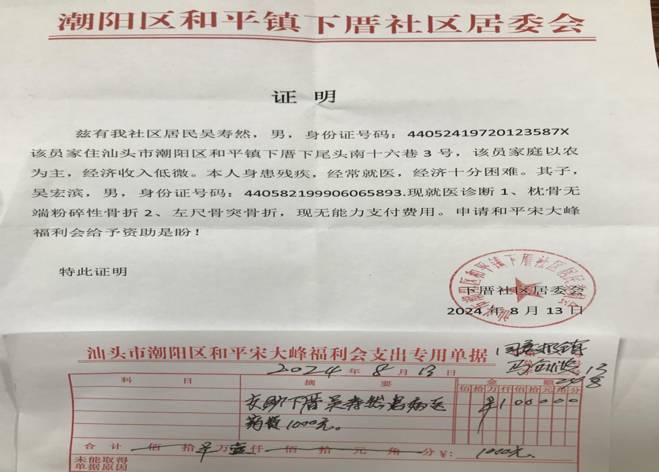 潮阳区和平镇下厝社区居委会
证 明
兹有我社区居民吴寿然，男，身份证号码：44052419720123587X
该员家住汕头市潮阳区和平镇下厝下尾头南十六巷3号，该员家庭以农
为主，经济收入低微。本人身患残疾，经常就医，经济十分困难。其子，
吴宏滨，男，身份证号码：440582199906065893.现就医诊断1、枕骨无
端粉碎性骨折2、左尺骨突骨折，现无能力支付费用。申请和平宋大峰
福利会给予资助是盼！
特此证明
下厝社区居委会
2024年8月13日
汕头市潮阳区和平宋大峰福利会支出专用单据
2024年8月13日
科 目 摘 要 金 额
佰拾万仟佰拾元角分
下厝吴寿然患病医
药费1000元。
¥100000
合计 佰 拾 万壹仟 佰 拾 元 角 分 ¥：1000元
未能取得
单据原因